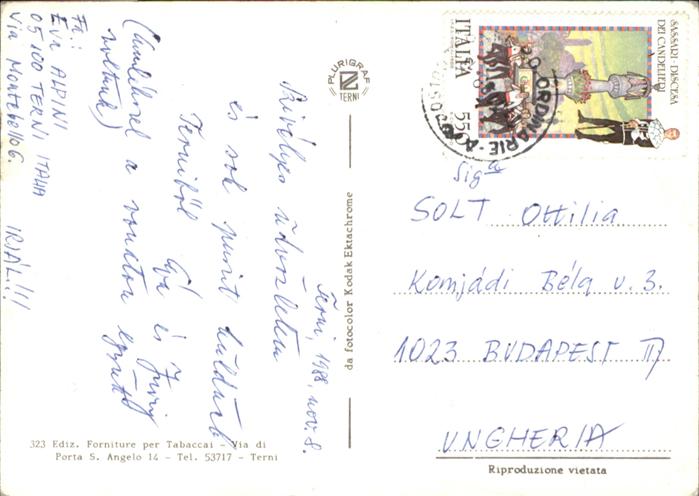 Terni, 1988. nov. 8.
Szivélyes üdvözletem
és sok puszit küldünk
Terniből Éva és Juri
(Amelikkel a vonaton együtt
voltunk)
Fa:
Eva ALPINI
05100 TERNI ITALIA
Via Montebello 6.
IRJÁL!!!
PLURIGRAF
TERNI
da fotocolor Kodak Ektachrome
323 Ediz. Forniture per Tabaccai - Via di
Porta S. Angelo 14 - Tel. 53717 - Terni
SASSARI - DISCESA
DEI CANDELIERI
ITALIA 550
ORDINARIE - A
Sig.ra
SOLT Ottilia
Komjádi Béla u. 3.
1023 BUDAPEST II
UNGHERIA
Riproduzione vietata